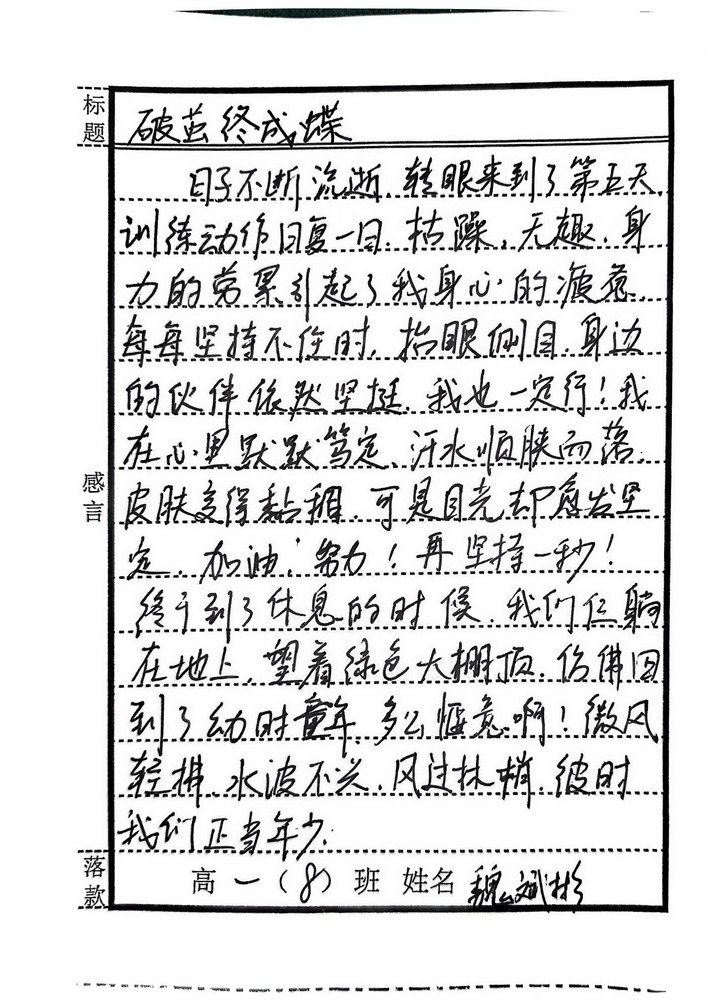 标题
破茧终成蝶
日子不断流逝,转眼来到了第五天,
训练动作日复一日,枯躁,无趣,身
力的劳累引起了我身心的疲惫,
每每坚持不住时,抬眼侧目,身边
的伙伴依然坚挺,我也一定行!我
在心里默默笃定,汗水顺脥而落,
皮肤变得黏稠,可是目光却愈发坚
定,加油,努力!再坚持一秒!
终于到了休息的时候,我们仨躺
在地上,望着绿色大棚顶,仿佛回
到了幼时童年,多么惬意啊!微风
轻拂,水波不兴,风过林梢,彼时
我们正当年少.
感言
落款
高一(8)班 姓名 魏斌彬